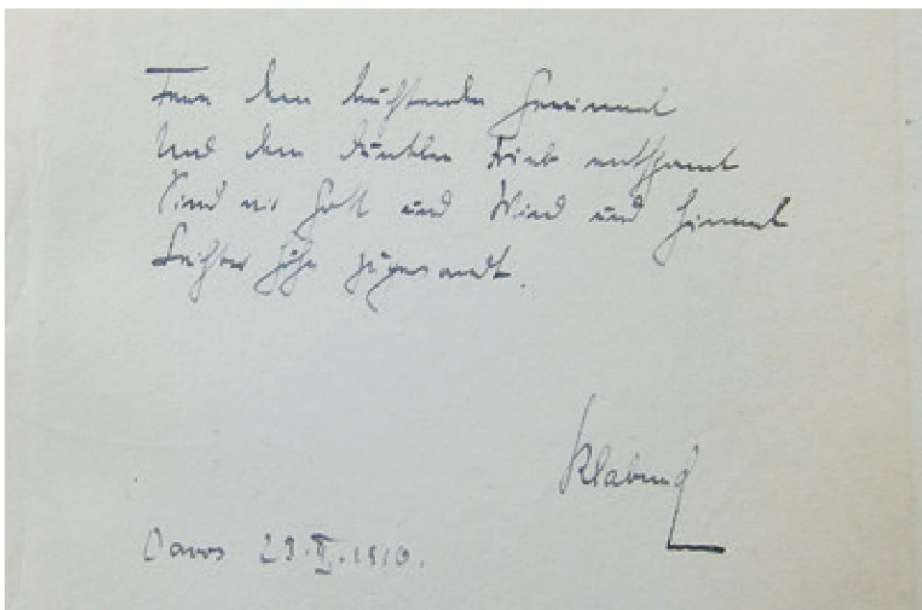 Fern dem Gewimmel
Und dem dunklen Trieb entspannt
Sind wir Gott und Wind und Himmel
Leichter Höhe zugewandt.
Klabund
Davos